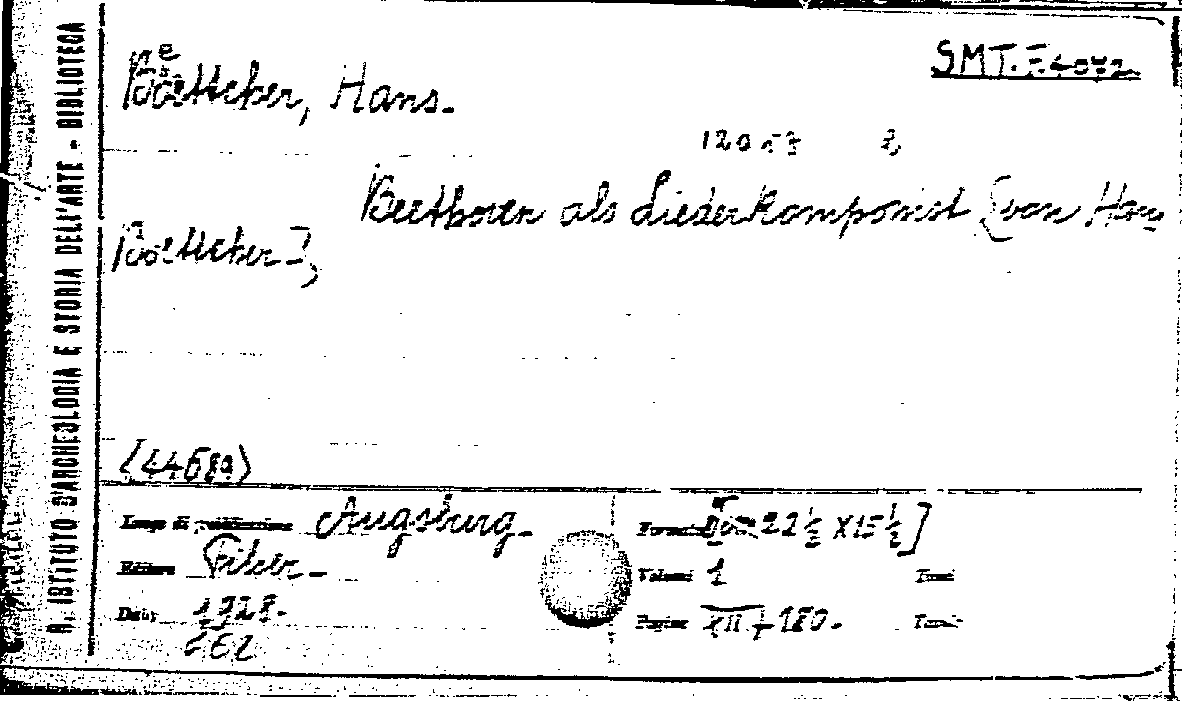 R. ISTITUTO D'ARCHEOLOGIA E STORIA DELL'ARTE - BIBLIOTECA
SMT.
Boettcher, Hans.
Beethoven als Liederkomponist [von Hans
Boettcher],
(44689)
Luogo di pubblicazione Augsburg.
Editore Filser.
Data 1928.
Formato 22½ X 15½]
Volumi 1 Tomi
Pagine XII + 180. Tavole